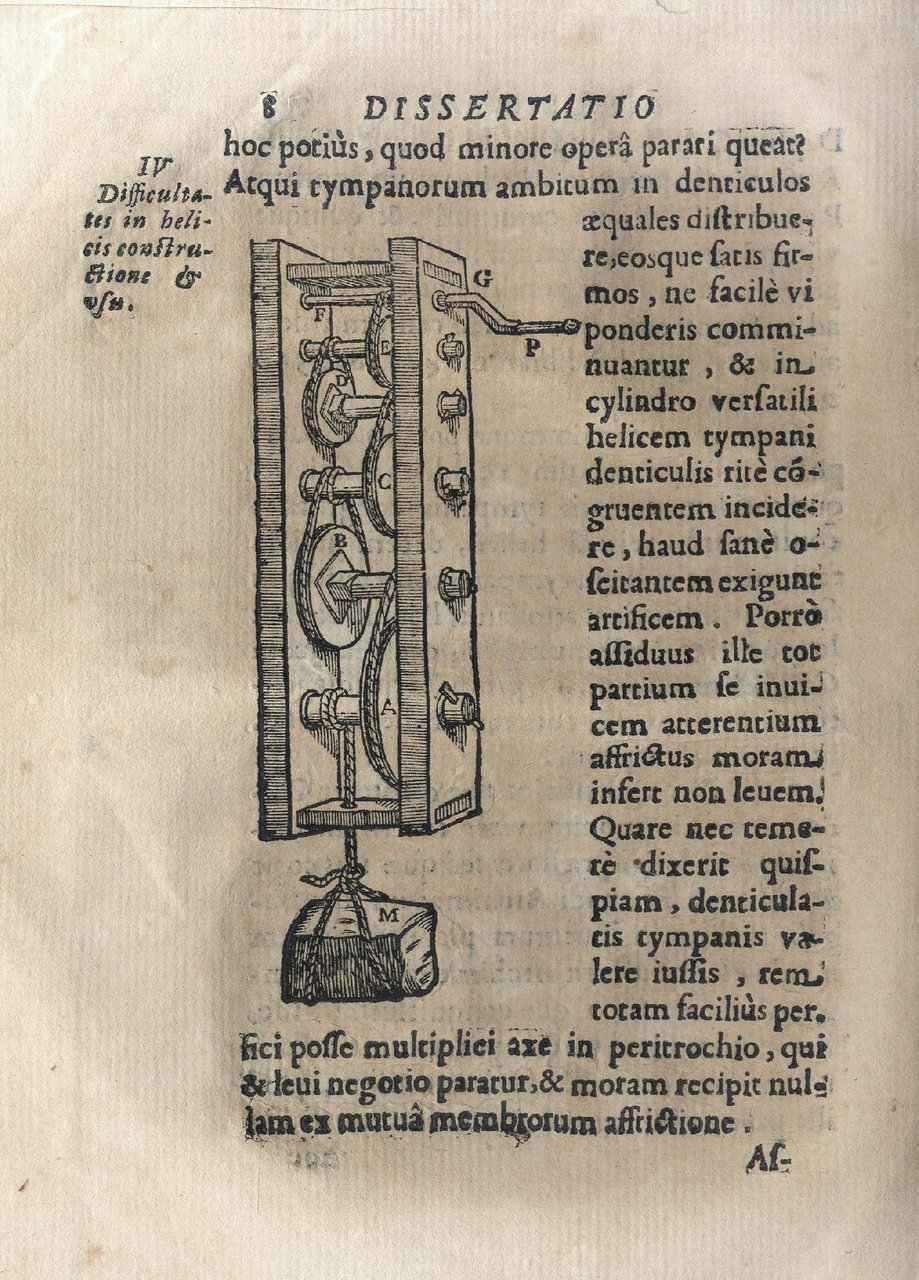 8 DISSERTATIO
hoc potiùs, quod minore operâ parari queat?
IV
Difficulta-
tes in heli-
cis constru-
ctione &
vsu.
Atqui tympanorum ambitum in denticulos
æquales distribue-
re, eosque satis fir-
mos, ne facilè vi
ponderis commi-
nuantur, & in
cylindro versatili
helicem tympani
denticulis ritè cō-
gruentem incide-
re, haud sanè o-
scitantem exigunt
artificem. Porrò
assiduus ille tot
partium se inui-
cem atterentium
affrictus moram
infert non leuem.
Quare nec teme-
rè dixerit quis-
piam, denticula-
tis tympanis va-
lere iussis, rem
totam faciliùs per-
fici posse multiplici axe in peritrochio, qui
& leui negotio paratur, & moram recipit nul-
lam ex mutuâ membrorum affrictione.
As-
G
F
E
P
D
C
B
A
M